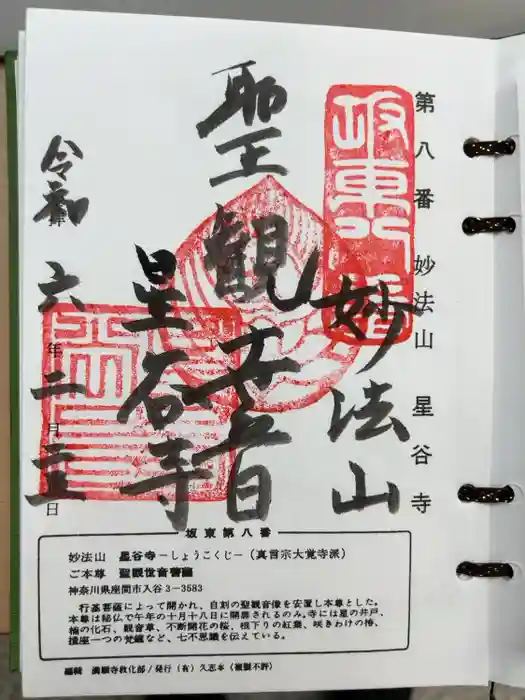 第八番 妙法山 星谷寺
坂東八番
妙法山
聖観世音
星谷寺
令和六年二月 日
坂東第八番
妙法山 星谷寺−しょうこくじ−(真言宗大覚寺派)
ご本尊 聖観世音菩薩
神奈川県座間市入谷3−3583
行基菩薩によって開かれ、自刻の聖観音像を安置し本尊とした。
本尊は秘仏で午年の十月十八日に開扉されるのみ。寺には星の井戸、
楠の化石、観音草、不断開花の桜、根下りの紅葉、咲きわけの椿、
撞座一つの梵鐘など、七不思議を伝えている。
編輯 満願寺教化部/発行(有)久志本(複製不許)